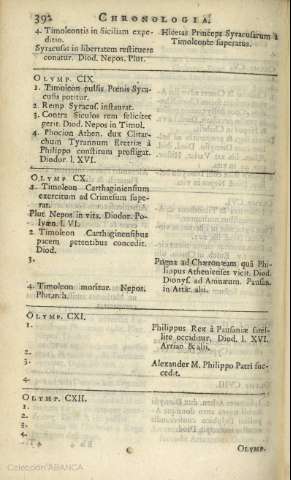 392 CHRONOLOGIA.
4. Timoleontis in Siciliam expeditio.
Syracusas in libertatem restituere conatur. Diod. Nepos. Plut.
Hicetas Princeps Syracusarum a Timoleonte superatus.
OLYMP. CIX.
1. Timoleon pulsis Pœnis Syracusis potitur.
2. Remp. Syracus. instaurat.
3. Contra Siculos rem feliciter gerit. Diod. Nepos in Timol.
4. Phocion Athen. dux Clitarchum Tyrannum Eretriæ à Philippo constitum profligat. Diodor. l. XVI.
OLYMP. CX.
1. Timoleon Carthaginiensium exercitum ad Crimesum superat.
Plut Nepos in vita. Diodor. Polyæn. l. VI.
2 Timoleon Carthaginensibus pacem petentibus concedit. Diod.
3.
Pugna ad Chæroneam qua Philippus Athenienses vicit. Diod. Dionys. ad Ammæum. Pausan. in Attic. alii.
4. Timoleon moritur. Nepos. Plutarch.
OLYMP. CXI.
1.
Philippus Rex à Pausaniæ satellite occiditur. Diod. l. XVI. Arrian. & alii.
2.
3.
Alexander M. Philippo Patri succedit.
4.
OLYMP. CXII.
1.
2.
3.
4.
OLYMP.
Colección ABANCA